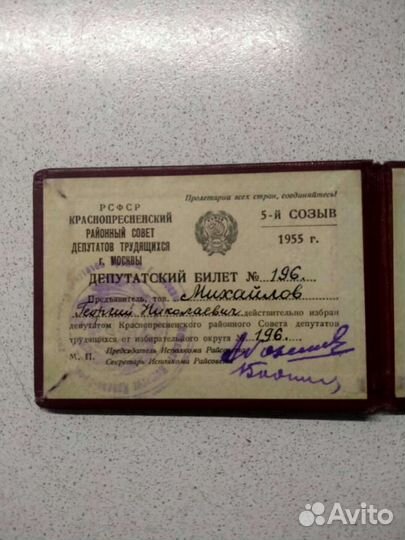 Пролетарии всех стран, соединяйтесь!
РСФСР
КРАСНОПРЕСНЕНСКИЙ
РАЙОННЫЙ СОВЕТ
ДЕПУТАТОВ ТРУДЯЩИХСЯ
г. МОСКВЫ
5-й СОЗЫВ
1955 г.
ДЕПУТАТСКИЙ БИЛЕТ № 196.
Предъявитель, тов. Михайлов
Георгий Николаевич действительно избран
депутатом Краснопресненского районного Совета депутатов
трудящихся от избирательного округа № 196.
Председатель Исполкома Райсовета
М. П. Секретарь Исполкома Райсовета
Avito